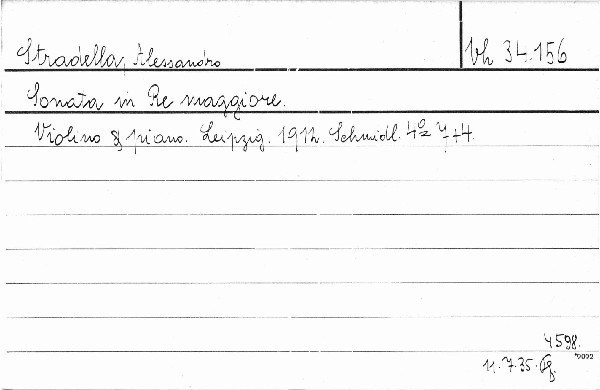 Stradella, Alessandro
Vh 34.156
Sonata in Re maggiore.
Violino & piano. Leipzig. 1912. Schmidl. 4o 4+4.
4598.
9092
11.7.35.